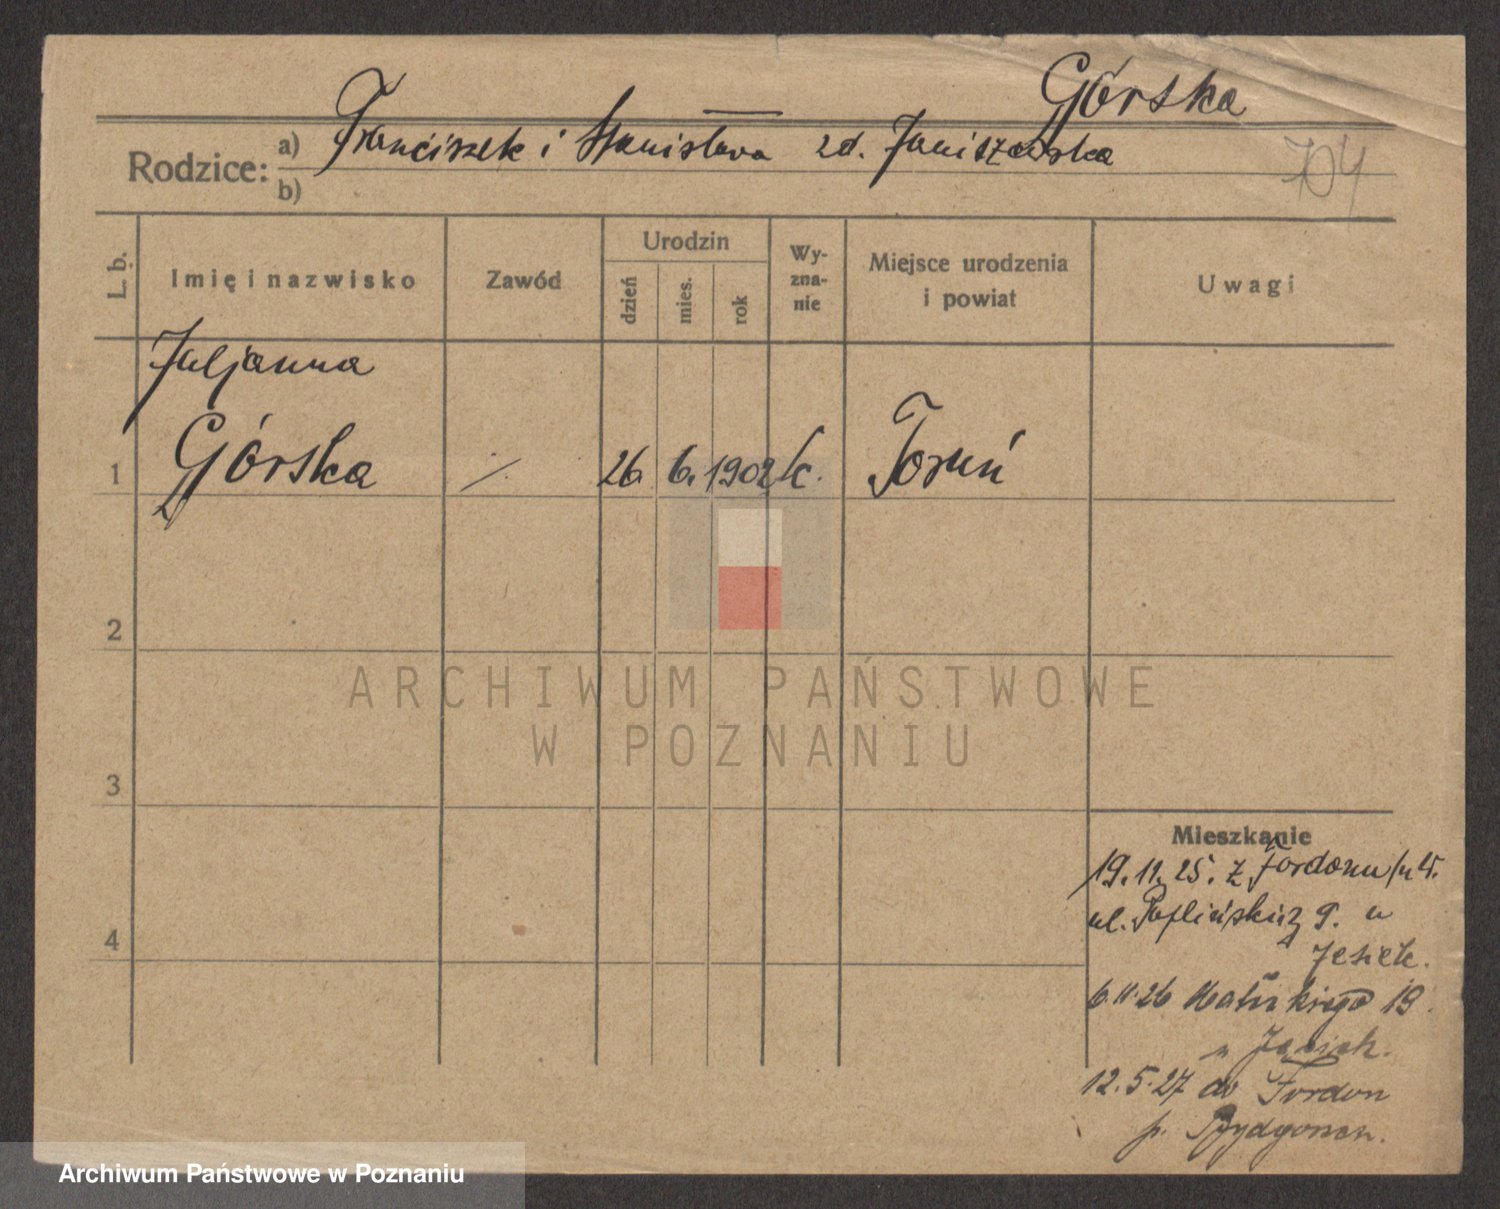 Górska
Rodzice: a) Franciszek i Stanisława zd. Janiszewska
b)
704
L. b.
Imię i nazwisko
Zawód
Urodzin
dzień
mies.
rok
Wy-
zna-
nie
Miejsce urodzenia
i powiat
Uwagi
Juljanna
1 Górska 26. 6. 1902 k. Toruń
2
3
4
Mieszkanie
19.11.25. z Fordonu
ul. 9. u
6.11.26 19.
u
12.5.27 do Fordon
p. Bydgoszcz.
ARCHIWUM PAŃSTWOWE
W POZNANIU
Archiwum Państwowe w Poznaniu